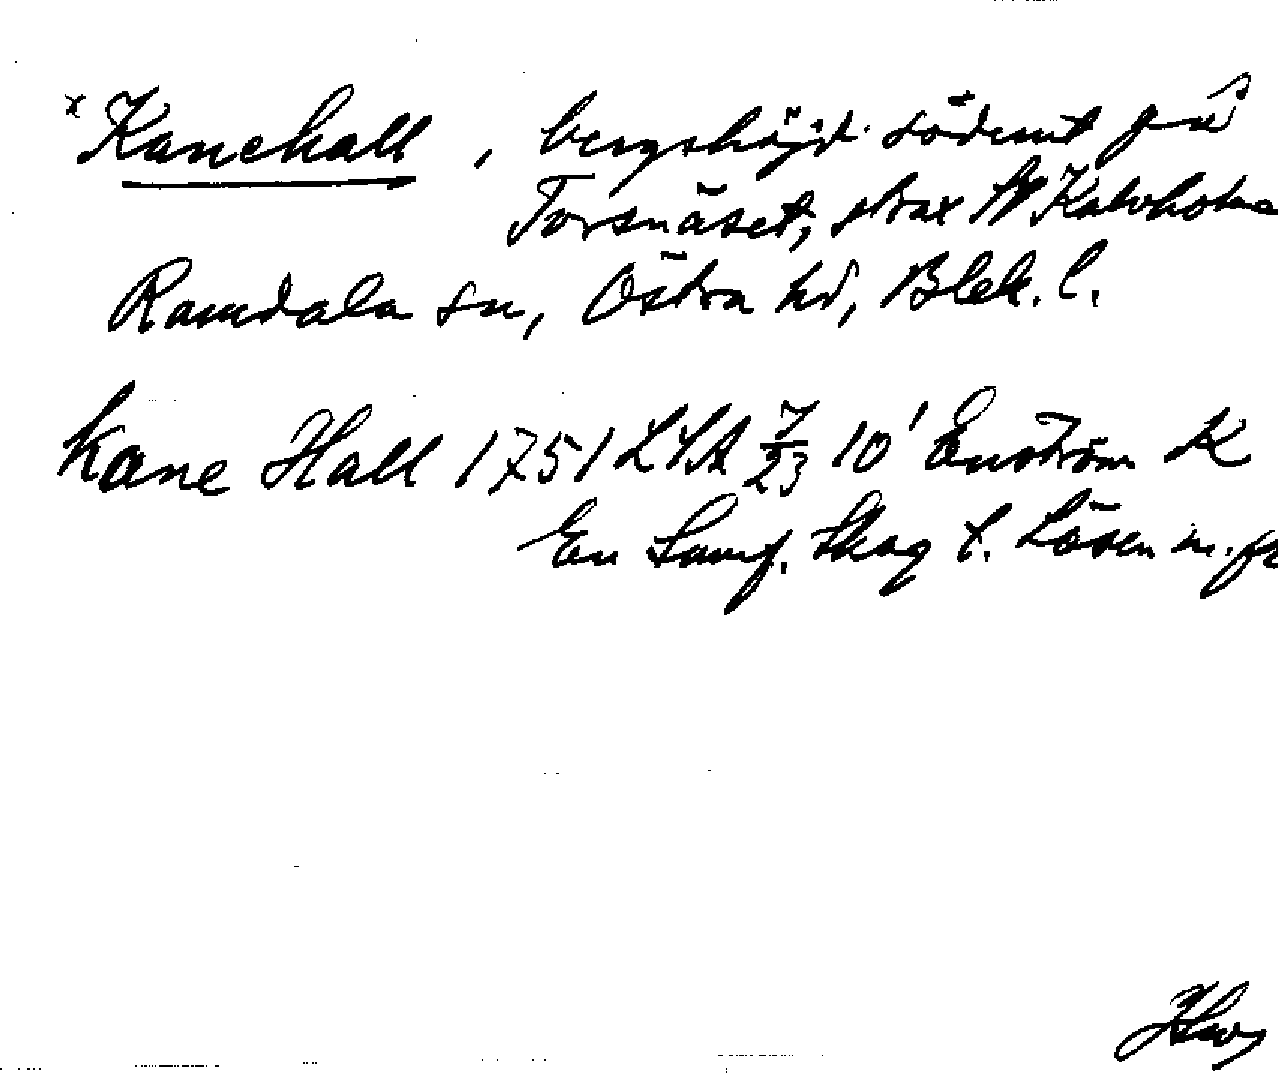 x Kanehall, bergshöjd söderut på
Torsnäset, strax W Kalvholm
Ramdala sn, Östra hd, Blek. l.
Kane Hall 1751 LSA 7/23 10' Enström K
En Samf. Skog t. Lösen m. fl